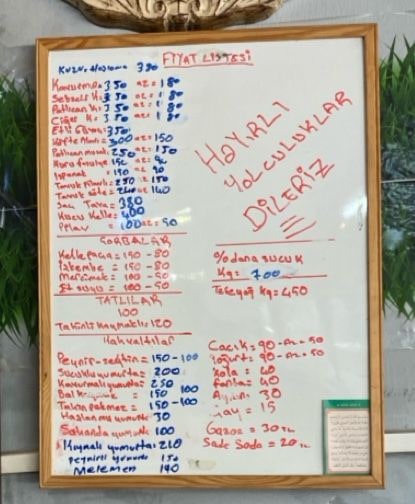 FİYAT LİSTESİ
Kuzu 350
Kavurma = 350 az = 180
Sebzeli K = 350 az = 180
Patlıcan K = 350 az = 180
Ciğer K = 350 az = 180
Etli 350
Köfte 300 az = 150
Patlıcan musak. 250 az = 150
Kuru fasulye 150 az = 90
Ispanak = 150 az = 90
Tavuk 250 az = 150
Tavuk 240 az = 140
Saç Tava = 380
Kuzu Kelle = 400
Pilav = 100 az = 50
ÇORBALAR
Kelle paça = 150 - 80
İşkembe = 150 - 80
Mercimek = 100 - 50
Et suyu = 100 - 50
TATLILAR
100
Tahinli kaymaklı = 120
Kahvaltılar
Peynir-zeytin = 150-100
Sucuklu yumurta = 200
Kavurmalı yumurta = 250
Bal 150 100
Tahin pekmez = 150-100
Haşlanmış yumurta 30
Sahanda yumurta 100
Kıymalı yumurta = 210
Peynirli yumurta 150
Melemen 140
HAYIRLI
YOLCULUKLAR
DİLERİZ
% dana sucuk
Kg = 700
Tereyağ Kg = 450
Cacık = 90 - az - 50
Yoğurt = 90 - az - 50
Kola = 40
Fanta = 40
Ayran = 30
Çay = 15
Gazoz = 30 TL
Sade Soda = 20 TL